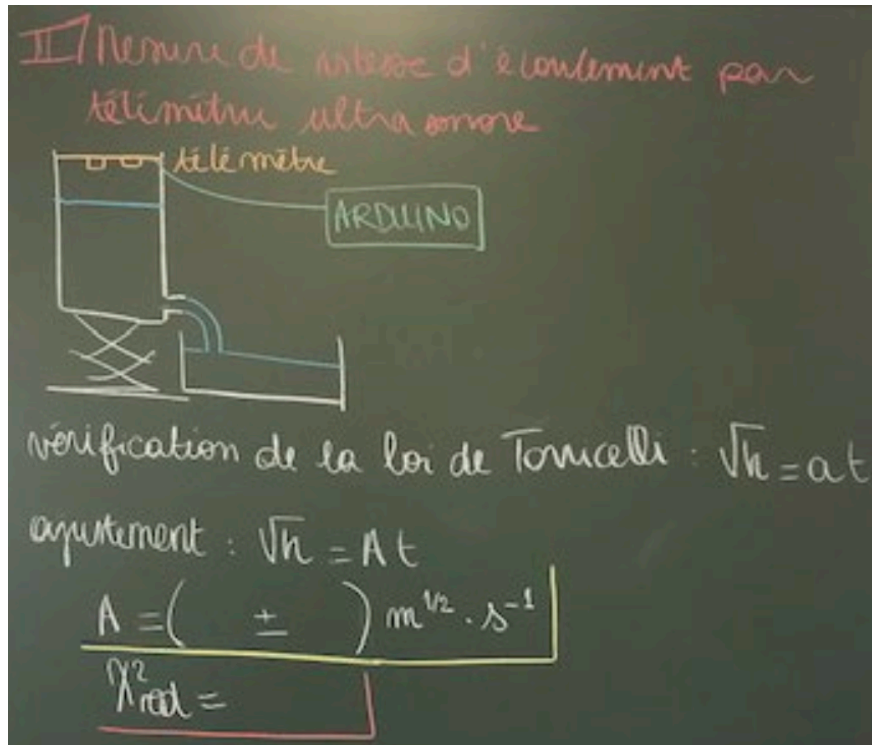 II/ Mesure de vitesse d'écoulement par
télémétrie ultra sonore
télémètre
ARDUINO
vérification de la loi de Torricelli : √h = at
ajustement : √h = At
A = (   ±   ) m^1/2 · s^-1
χ²red =